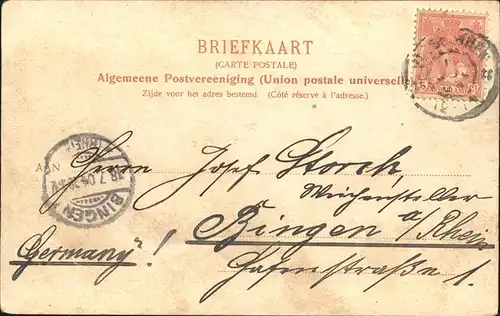 BRIEFKAART
(CARTE POSTALE)
Algemeene Postvereeniging (Union postale universell
Zijde voor het adres bestemd. (Côté réservé à l'adresse.)
AAN Herrn Josef Storck,
Weichensteller
Bingen a/Rhein
Germany"!
Hafenstraße 1.
BINGEN
(RHEIN)